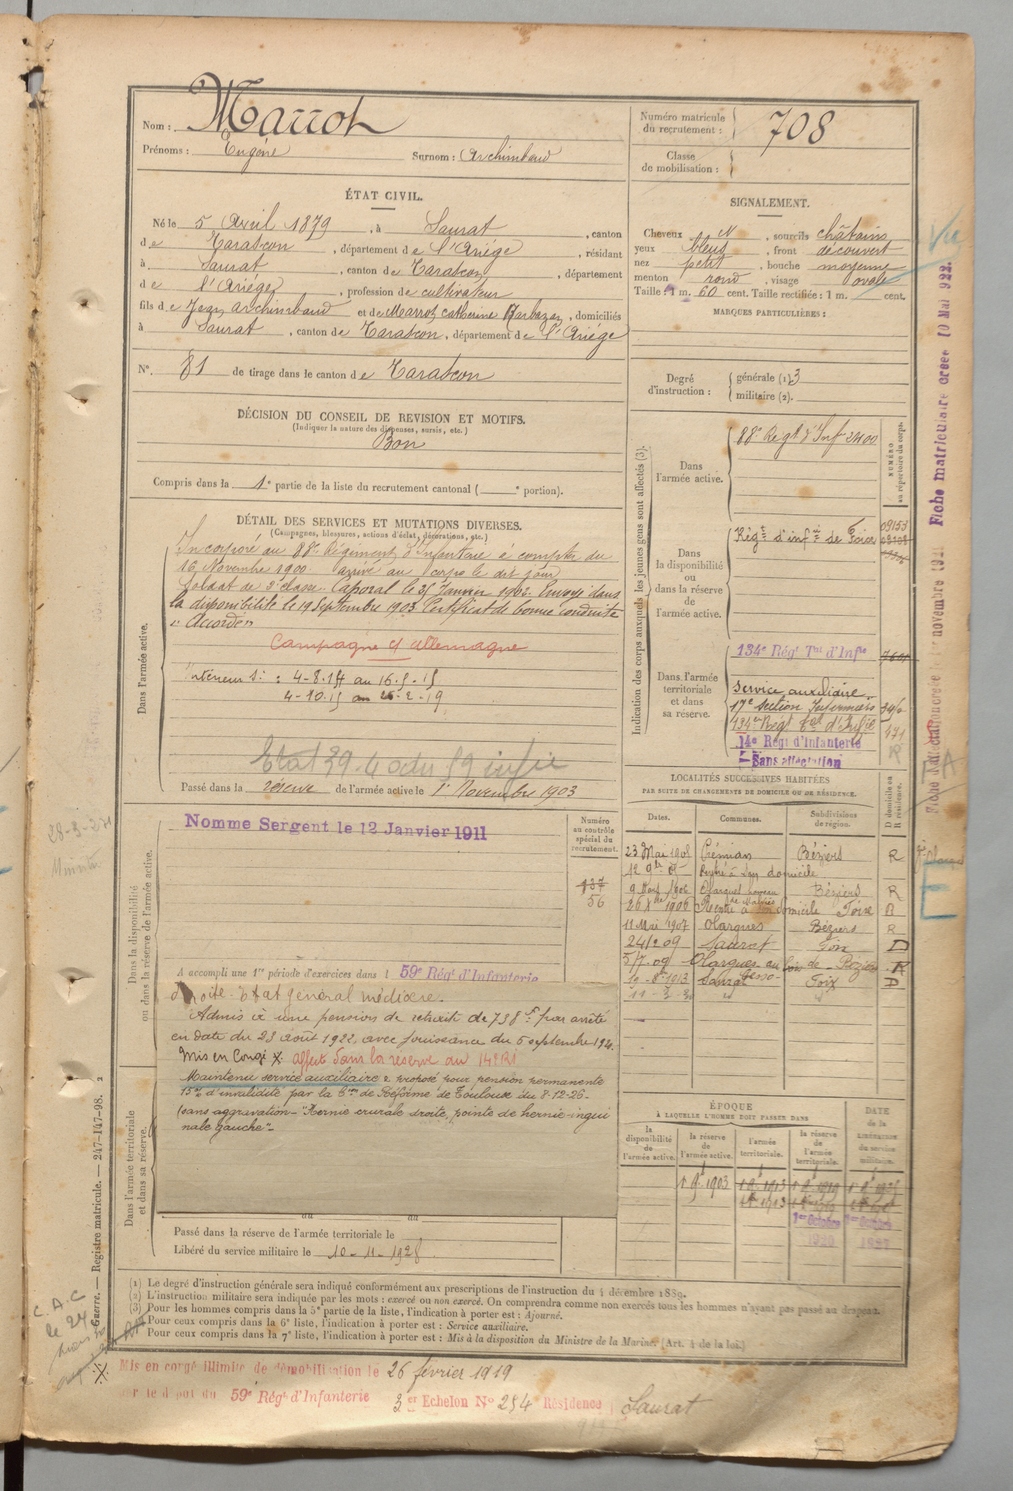 Nom : Marrot
Prénoms : Eugène Surnom : Archimbaud
Numéro matricule du recrutement : 708
Classe de mobilisation :
ÉTAT CIVIL.
Né le 5 Avril 1879, à Saurat, canton
de Tarascon, département de l'Ariège, résidant
à Saurat, canton de Tarascon, département
de l'Ariège, profession de cultivateur
fils de Jean Archimbaud et de Marrot Catherine Barbazan, domiciliés
à Saurat, canton de Tarascon, département de l'Ariège
N°. 81 de tirage dans le canton de Tarascon
SIGNALEMENT.
Cheveux N, sourcils châtains
yeux bleus, front découvert
nez petit, bouche moyenne
menton rond, visage ovale
Taille : 1 m. 60 cent. Taille rectifiée : 1 m. cent.
MARQUES PARTICULIÈRES :
Degré d'instruction : générale (1) 3
militaire (2).
DÉCISION DU CONSEIL DE REVISION ET MOTIFS.
(Indiquer la nature des dispenses, sursis, etc.)
Bon
Compris dans la 1e partie de la liste du recrutement cantonal ( e portion).
DÉTAIL DES SERVICES ET MUTATIONS DIVERSES.
(Campagnes, blessures, actions d'éclat, décorations, etc.)
Dans l'armée active.
Incorporé au 88e Régiment d'Infanterie à compter du
16 Novembre 1900 arrivé au corps le dit jour
Soldat de 2e classe. Caporal le 25 Janvier 1902. Envoyé dans
la disponibilité le 19 Septembre 1903. Certificat de bonne conduite
"Accordé"
Campagne c/ Allemagne
Intérieur S: : 4-8-14 au 16-5-15
4-10-15 au 26-2-19
Passé dans la réserve de l'armée active le 1er Novembre 1903
Dans la disponibilité ou dans la réserve de l'armée active.
Nomme Sergent le 12 Janvier 1911
Numéro au contrôle spécial du recrutement.
56
A accompli une 1re période d'exercices dans l 59e Régt d'Infanterie
droite. Etat général médiocre.
Admis à une pension de retraite de 738 f par arrêté
en date du 23 août 1922, avec jouissance du 5 septembre
Mis en Congé ※. Affecté dans la réserve au 14e RI
Maintenu service auxiliaire & proposé pour pension permanente
15% d'invalidité par la Con de Réforme de Toulouse du 8-12-26-
(sans aggravation - "Hernie crurale droite, pointe de hernie ingui
nale gauche"-
Dans l'armée territoriale et dans sa réserve.
Passé dans la réserve de l'armée territoriale le
Libéré du service militaire le 10-11-1928
Indication des corps auxquels les jeunes gens sont affectés (3).
NUMÉRO au répertoire du corps.
Dans l'armée active.
88e Régt d'Inf 2400
Dans la disponibilité ou dans la réserve de l'armée active.
Régt d'infie de Foix
Dans l'armée territoriale et dans sa réserve.
134e Régt Tal d'Infie
Service auxiliaire
17e Section Infirmiers
134e Régt Tal d'Infie
14e Régt d'Infanterie
Sans affectation
LOCALITÉS SUCCESSIVES HABITÉES
PAR SUITE DE CHANGEMENTS DE DOMICILE OU DE RÉSIDENCE.
Dates. Communes. Subdivisions de région. D domicile ou R résidence.
Prémian Béziers R
Rentré à son domicile
Béziers R
Rentré à son domicile Foix
11 Mai 1907 Olargues Béziers R
24/2 09 Saurat Foix D
5/7-09 Olargues
1913 Saurat Foix D
ÉPOQUE
À LAQUELLE L'HOMME DOIT PASSER DANS
la disponibilité de l'armée active. la réserve de l'armée active. l'armée territoriale. la réserve de l'armée territoriale.
DATE de la libération du service militaire.
1903
(1) Le degré d'instruction générale sera indiqué conformément aux prescriptions de l'instruction du 4 décembre 1889.
(2) L'instruction militaire sera indiquée par les mots : exercé ou non exercé. On comprendra comme non exercés tous les hommes n'ayant pas passé au drapeau.
(3) Pour les hommes compris dans la 5e partie de la liste, l'indication à porter est : Ajourné.
Pour ceux compris dans la 6e liste, l'indication à porter est : Service auxiliaire.
Pour ceux compris dans la 7e liste, l'indication à porter est : Mis à la disposition du Ministre de la Marine. (Art. 4 de la loi.)
※. Mis en congé illimité de démobilisation le 26 février 1919
59e Régt d'Infanterie 3er Echelon N° 254 Résidence Saurat
Guerre. — Registre matricule. — 247-147-98.
C.A.C
28-3-